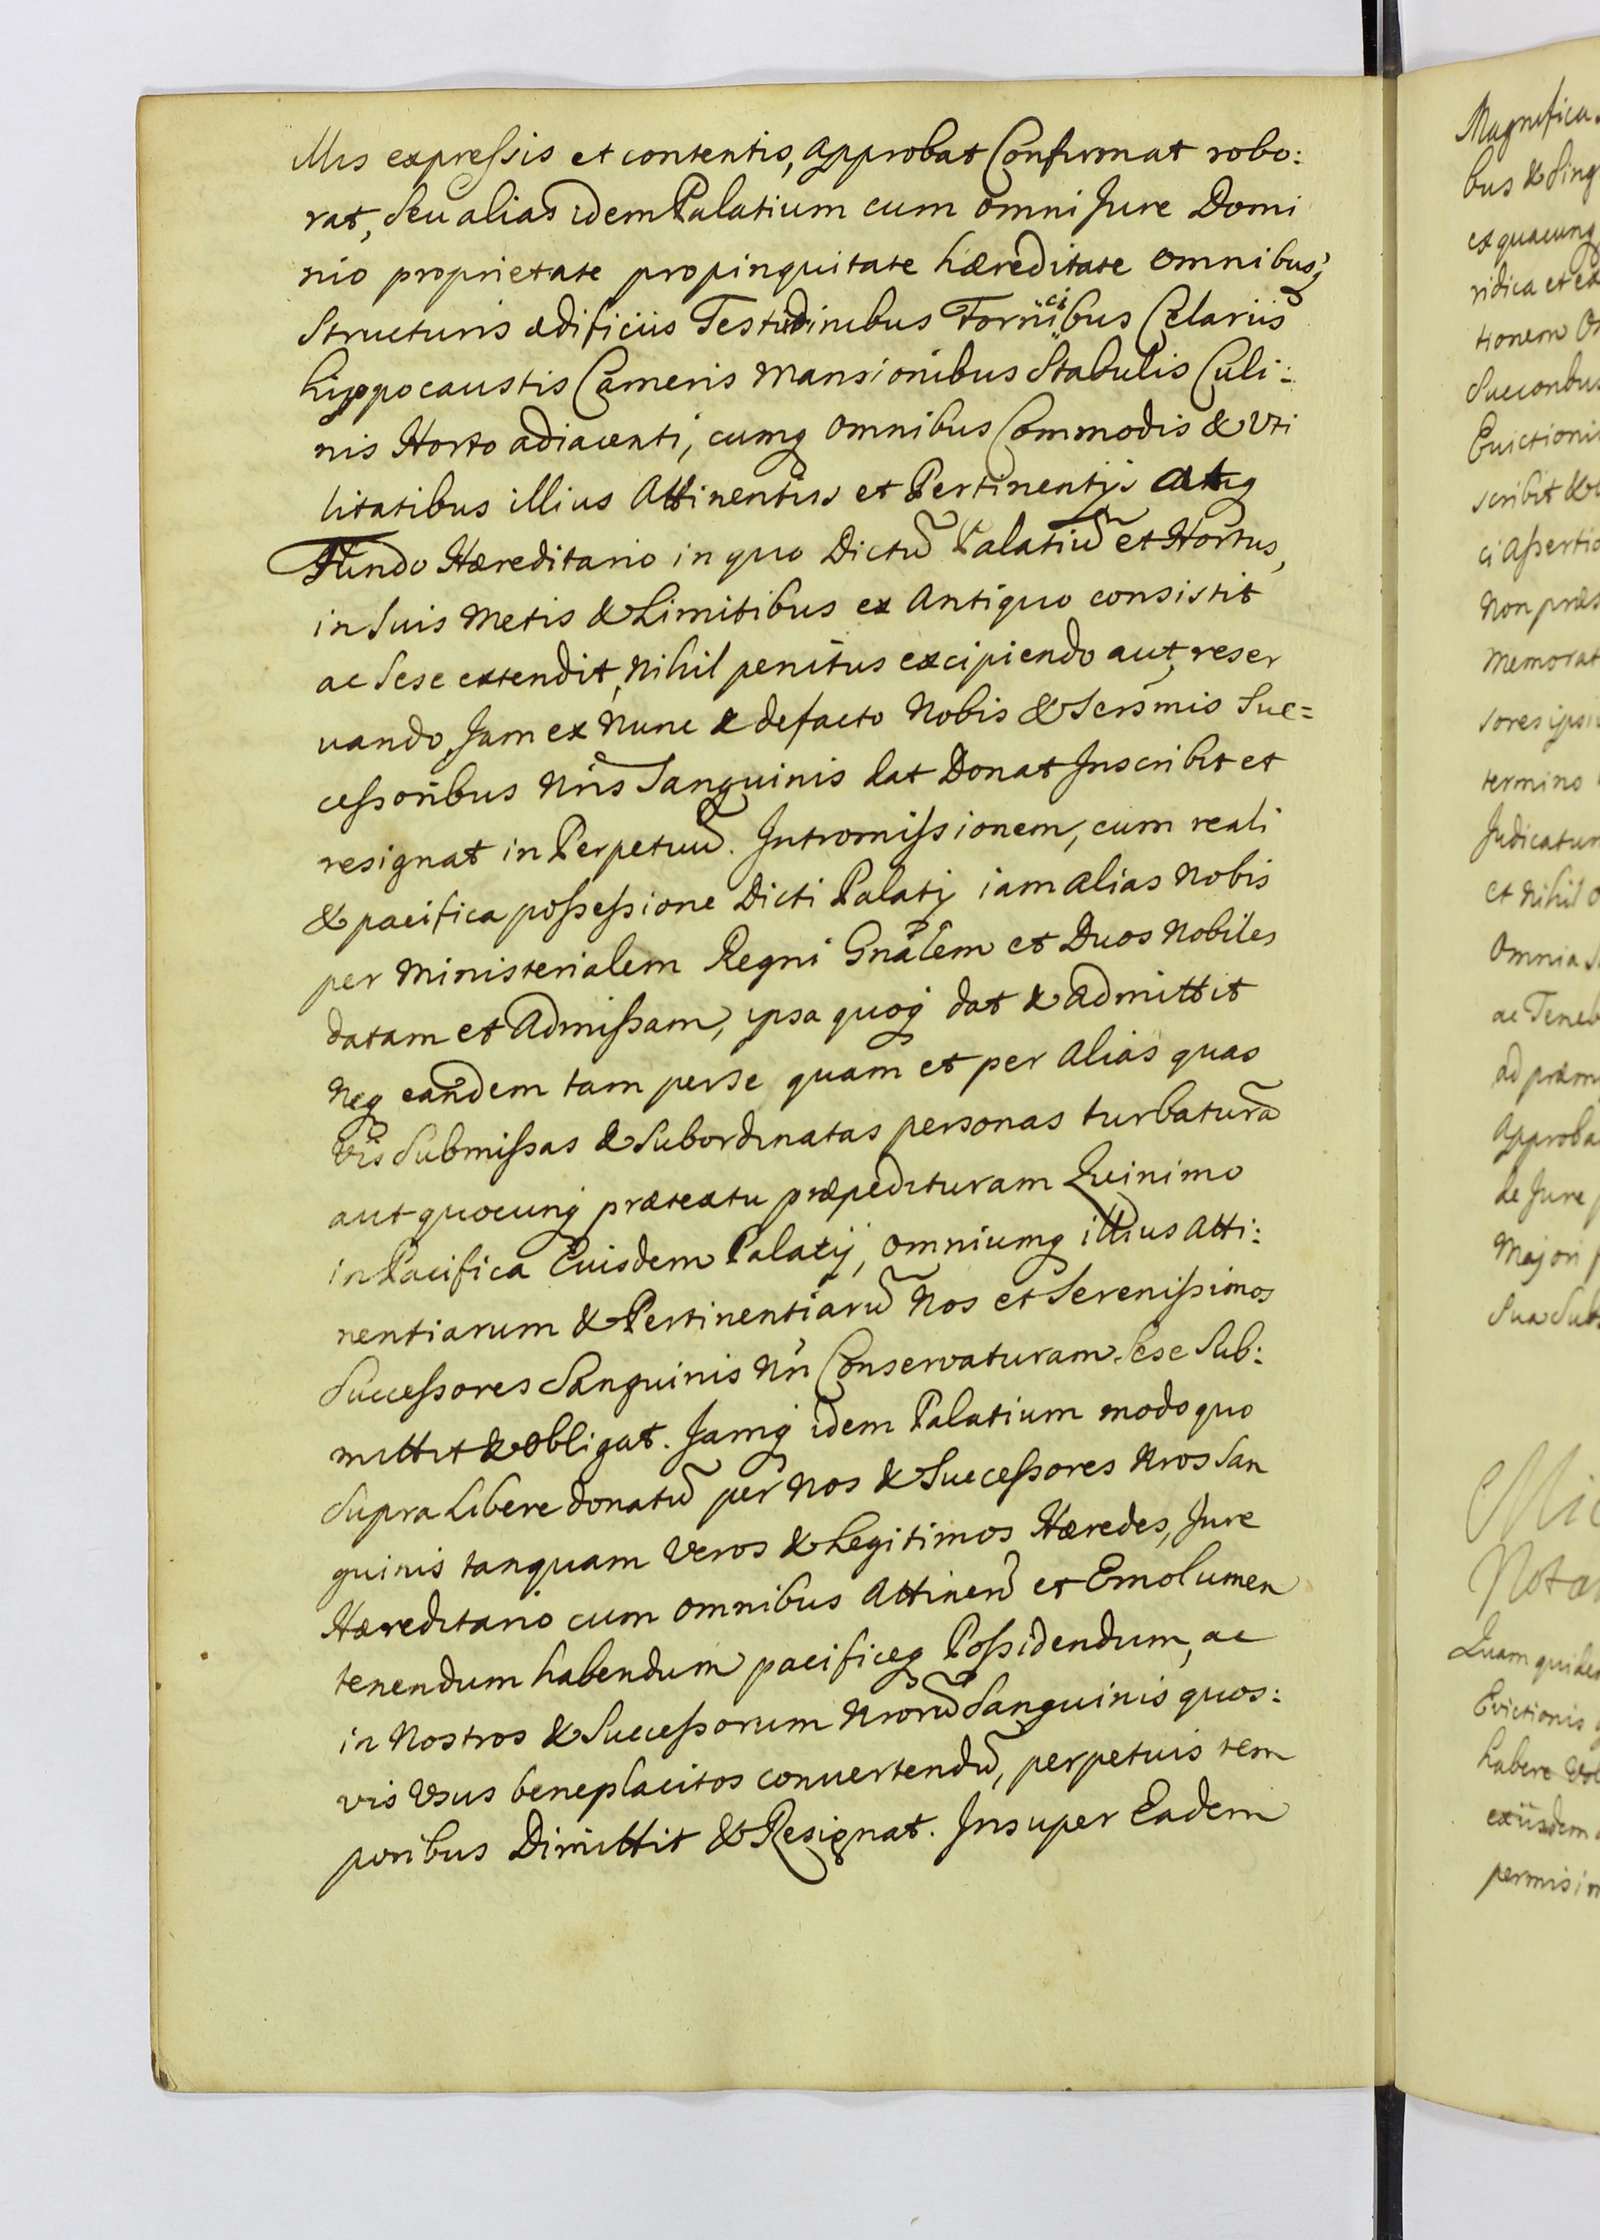 illis expressis et contentis, approbat Confirmat robo:
rat, seu alias idem Palatium cum omni Jure Domi
nio proprietate propinquitate hæreditate omnibusq;
structuris ædificiis Testudinibus Fornicibus Celariis
hippocaustis Cameris mansionibus Stabulis Culi:
nis Horto adiacenti, cumq omnibus Commodis & Vti
litatibus illius Attinentiis et Pertinentijs atq
Fundo Hæreditario in quo Dictũ Palatiũ et Hortus,
in suis metis & Limitibus ex Antiquo consistit
ac sese extendit, nihil penitus excipiendo aut, reser
uando, Jam ex nunc & defacto nobis & Sersmis Suc=
cessoribus Nris Sanguinis dat Donat Inscribit et
resignat in Perpetuũ. Intromissionem, cum reali
& pacifica possessione Dicti Palatij iam alias nobis
per ministerialem Regni Gnalem et Duos nobiles
datam et Admissam, ipsa quoq dat & admittit
neq eandem tam per se quam et per alias quas
vis submissas & subordinatas personas turbaturã
aut quocunq prætextu præpedituram Quinimo
in Pacifica Euisdem Palatij, omniumq illius Atti:
nentiarum & Pertinentiarũ nos et Serenissimos
Successores Sanguinis Nri Conservaturam sese Sub:
mittit & obligat. Jamq idem Palatium modo quo
supra Libere donatũ per nos & Successores Nros San
guinis tanquam veros & Legitimos Hæredes, Jure
Hæreditario cum omnibus Attinen et Emolumen
tenendum habendum pacificeq Possidendum, ac
in nostros & Successorum Nrorũ Sanguinis quos:
vis Vsus beneplacitos convertendũ, perpetuis tem
poribus Dimittit & Resignat. Insuper Eadem
Magnifica
bus & Sing
ex quacunq
ridica et ex
tionem
Succoribus
Evictionis
scribit &
ci Assertio
non præs
memorat
sores ipsi
termino
Judicatum
et nihil
omnia
ac Teneb
ad præm
Approba
de Jure
Majori
Sua Sub
Mic
Nota
Quam quidem
Evictionis
habere Vol
exiisdem
permisim